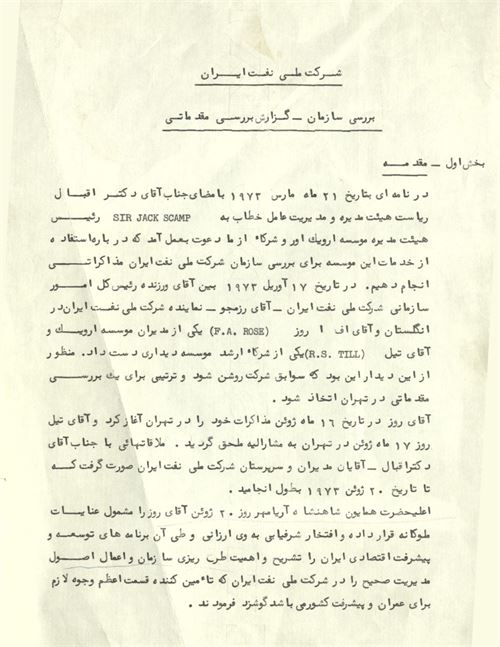 شرکت ملی نفت ایران
بررسی سازمان – گزارش بررسی مقدماتی
بخش اول – مقدمه
در نامه ای بتاریخ ۲۱ ماه مارس ۱۹۷۳ بامضای جناب آقای دکتر اقبال
ریاست هیئت مدیره و مدیریت عامل خطاب به SIR JACK SCAMP رئیس
هیئت مدیره موسسه ارویک اور و شرکاء از ما دعوت بعمل آمد که درباره استفاده
از خدمات این موسسه برای بررسی سازمان شرکت ملی نفت ایران مذاکراتی
انجام دهیم. در تاریخ ۱۷ آوریل ۱۹۷۳ بین آقای ورزنده رئیس کل امور
سازمانی شرکت ملی نفت ایران – آقای رزمجو – نماینده شرکت ملی نفت ایران در
انگلستان و آقای اف ا روز (F.A. ROSE) یکی از مدیران موسسه ارویک و
آقای تیل (R.S. TILL) یکی از شرکاء ارشد موسسه دیداری دست داد. منظور
از این دیدار این بود که سوابق شرکت روشن شود و ترتیبی برای یک بررسی
مقدماتی در تهران اتخاذ شود.
آقای روز در تاریخ ۱۶ ماه ژوئن مذاکرات خود را در تهران آغاز کرد و آقای تیل
روز ۱۷ ماه ژوئن در تهران به مشارالیه ملحق گردید. ملاقاتهائی با جناب آقای
دکتر اقبال – آقایان مدیران و سرپرستان شرکت ملی نفت ایران صورت گرفت که
تا تاریخ ۲۰ ژوئن ۱۹۷۳ بطول انجامید.
اعلیحضرت همایون شاهنشاه آریامهر روز ۲۰ ژوئن آقای روز را مشمول عنایات
ملوکانه قرار داده و افتخار شرفیابی به وی ارزانی و طی آن برنامه های توسعه و
پیشرفت اقتصادی ایران را تشریح و اهمیت طرح ریزی سازمان و اعمال اصول
مدیریت صحیح را در شرکت ملی نفت ایران که تاءمین کننده قسمت اعظم وجوه لازم
برای عمران و پیشرفت کشور می باشد گوشزد فرمودند.